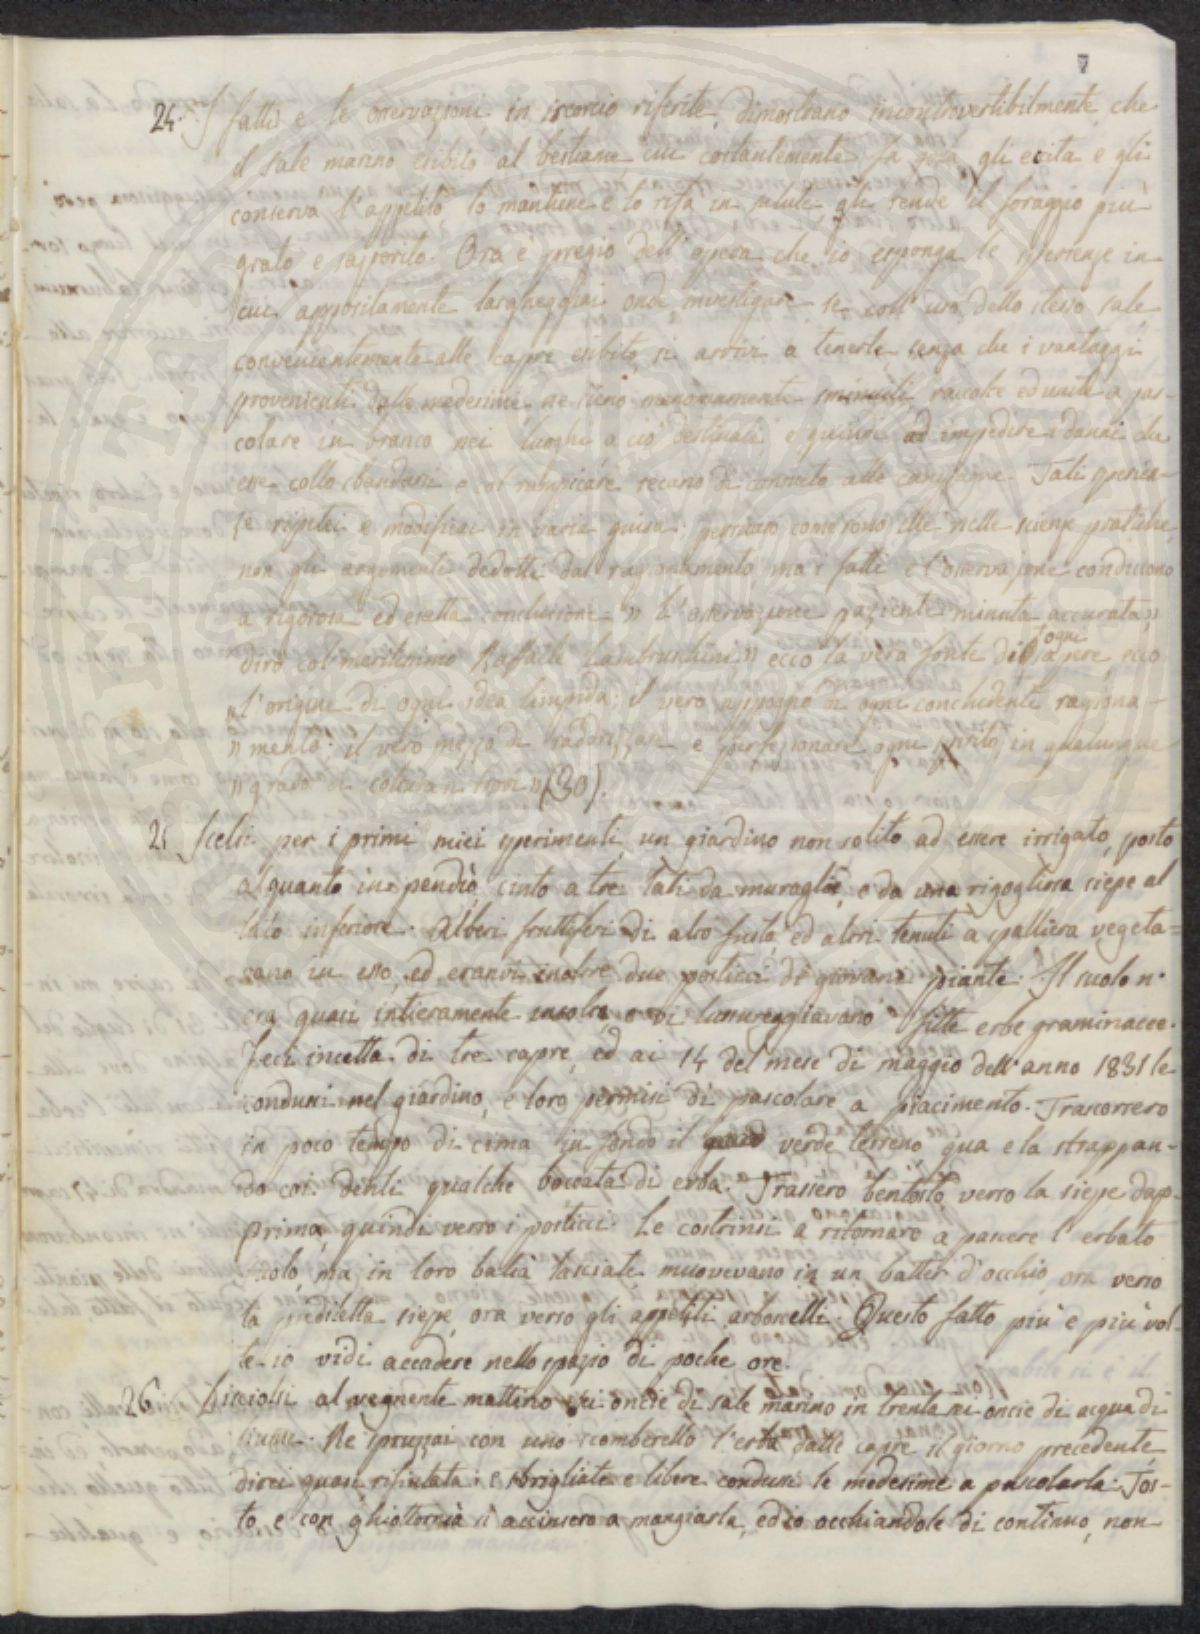 24. I fatti e le osservazioni in iscorcio riferite, dimostrano incontrovertibilmente che
il sale marino esibito al bestiame, cui costantemente fa gola, gli ecita e gli
conserva l'appetito, lo mantiene e lo rifà in salute, gli rende il foraggio più
grato e saporito. Ora è pregio dell'opera che io esponga le sperienze in
cui appositamente largheggiai onde investigare se coll'uso dello stesso sale
convenientemente alle capre esibito, si arrivi a tenerle, senza che i vantaggi
provenienti dalle medesime ne sieno menomamente sminuiti raccolte ed unite a pas-
colare in branco nei luoghi a ciò destinati e quindi ad impedire i danni che
esse collo sbandarsi e col rampicare recano di consueto alle campagne. Tali sperien-
ze ripetei e modificai in varia guisa: persuaso come sono che nelle scienze pratiche
non gli argomenti dedotti dal ragionamento ma i fatti e l'osservazione conducono
a rigorosa ed esatta conclusione. » L'osservazione paziente minuta accurata »
dirò col meritissimo Raffaele Lambruschini » ecco la vera fonte di ogni sapere ecco
» l'origine di ogni idea limpida; il vero appoggio di ogni concludente ragiona-
» mento. il vero mezzo di raddrizzare e perfezionare ogni spirito, in qualunque
» grado di coltura si trovi » (30).
25 Scelsi per i primi miei sperimenti un giardino non solito ad essere irrigato, posto
alquanto in pendìo, cinto a tre lati da muraglie e da una rigogliosa siepe al
lato inferiore. Alberi fruttiferi di alto fusto, ed altri tenuti a spalliera vegeta-
vano in esso, ed eranvi inoltre due posticci di giovani piante. Il suolo n'
era quasi intieramente incolto e vi lussureggiavano fitte erbe graminacee.
Feci incetta di tre capre, ed ai 14 del mese di maggio dell'anno 1831 le
condussi nel giardino, e loro permisi di pascolare a piacimento. Trascorsero
in poco tempo di cima in fondo il verde terreno qua e la strappan-
do coi denti qualche boccata di erba. Trassero bentosto verso la siepe dap-
prima, quindi verso i posticci. Le costrinsi a ritornare a pascere l'erbato
suolo, ma in loro balìa lasciate muovevano in un batter d'occhio, ora verso
la prediletta siepe, ora verso gli appetiti arboscelli. Questo fatto più e più vol-
te io vidi accadere nello spazio di poche ore.
26 Disciolsi al vegnente mattino sei oncie di sale marino in trenta sei oncie di acqua di
fiume. Ne spruzzai con uno scomberello l'erba dalle capre il giorno precedente
direi quasi rifiutata: e sbrigliate e libere condussi le medesime a pascolarla. Tos-
to, e con ghiottornia si accinsero a mangiarla, ed io occhiandole di continuo, non